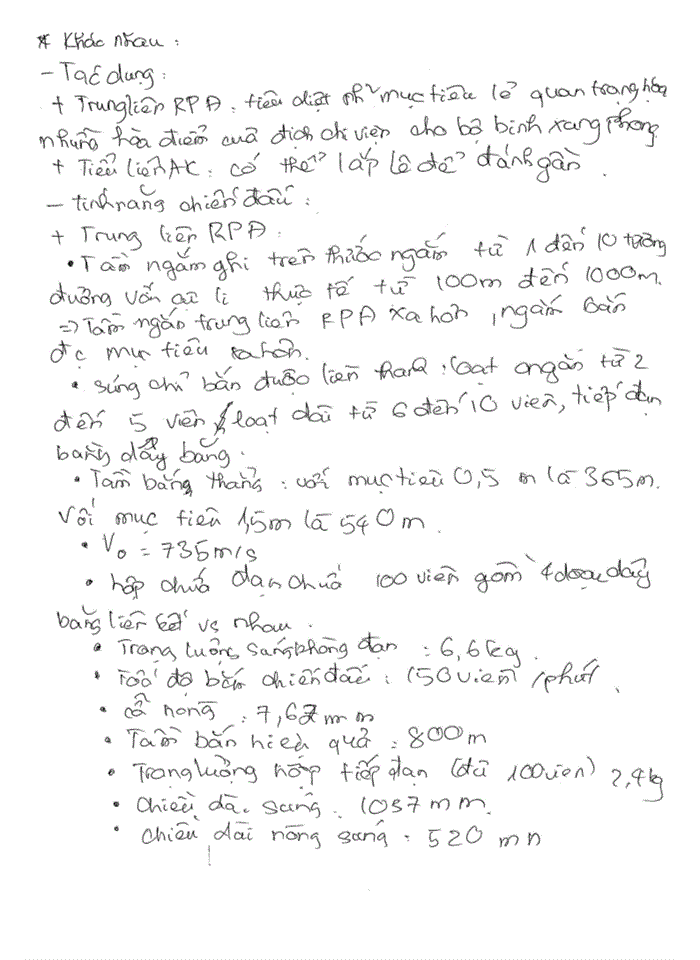 * Khác nhau :
- Tác dụng :
+ Trung liên RPĐ : tiêu diệt nh~ mục tiêu lẻ quan trọng hỏa
những hỏa điểm của địch chi viện cho bộ binh xung phong
+ Tiểu liên AK : có thể lắp lê để đánh gần .
- tính năng chiến đấu :
+ Trung liên RPĐ :
• Tầm ngắm ghi trên thước ngắm từ 1 đến 10 tương
đương với cự li thực tế từ 100m đến 1000m.
=> Tầm ngắm trung liên RPĐ xa hơn , ngắm bắn
đc mục tiêu xa hơn.
• súng chỉ bắn được liên thanh : loạt ngắn từ 2
đến 5 viên , loạt dài từ 6 đến 10 viên, tiếp đạn
bằng dây băng .
• Tầm bắn thẳng : với mục tiêu 0,5 m là 365m.
Với mục tiêu 1,5m là 540 m .
• V₀ = 735m/s
• hộp chứa đạn chứa 100 viên gồm 4 đoạn dây
băng liên kết vs nhau .
• Trọng lượng súng không đạn : 6,6kg .
• Tốc độ bắn chiến đấu : 150 viên /phút .
• cỡ nòng : 7,62 mm
• Tầm bắn hiệu quả : 800m
• Trọng lượng hộp tiếp đạn (đủ 100 viên) 2,4kg
• Chiều dài súng : 1037 mm.
• chiều dài nòng súng : 520 mm